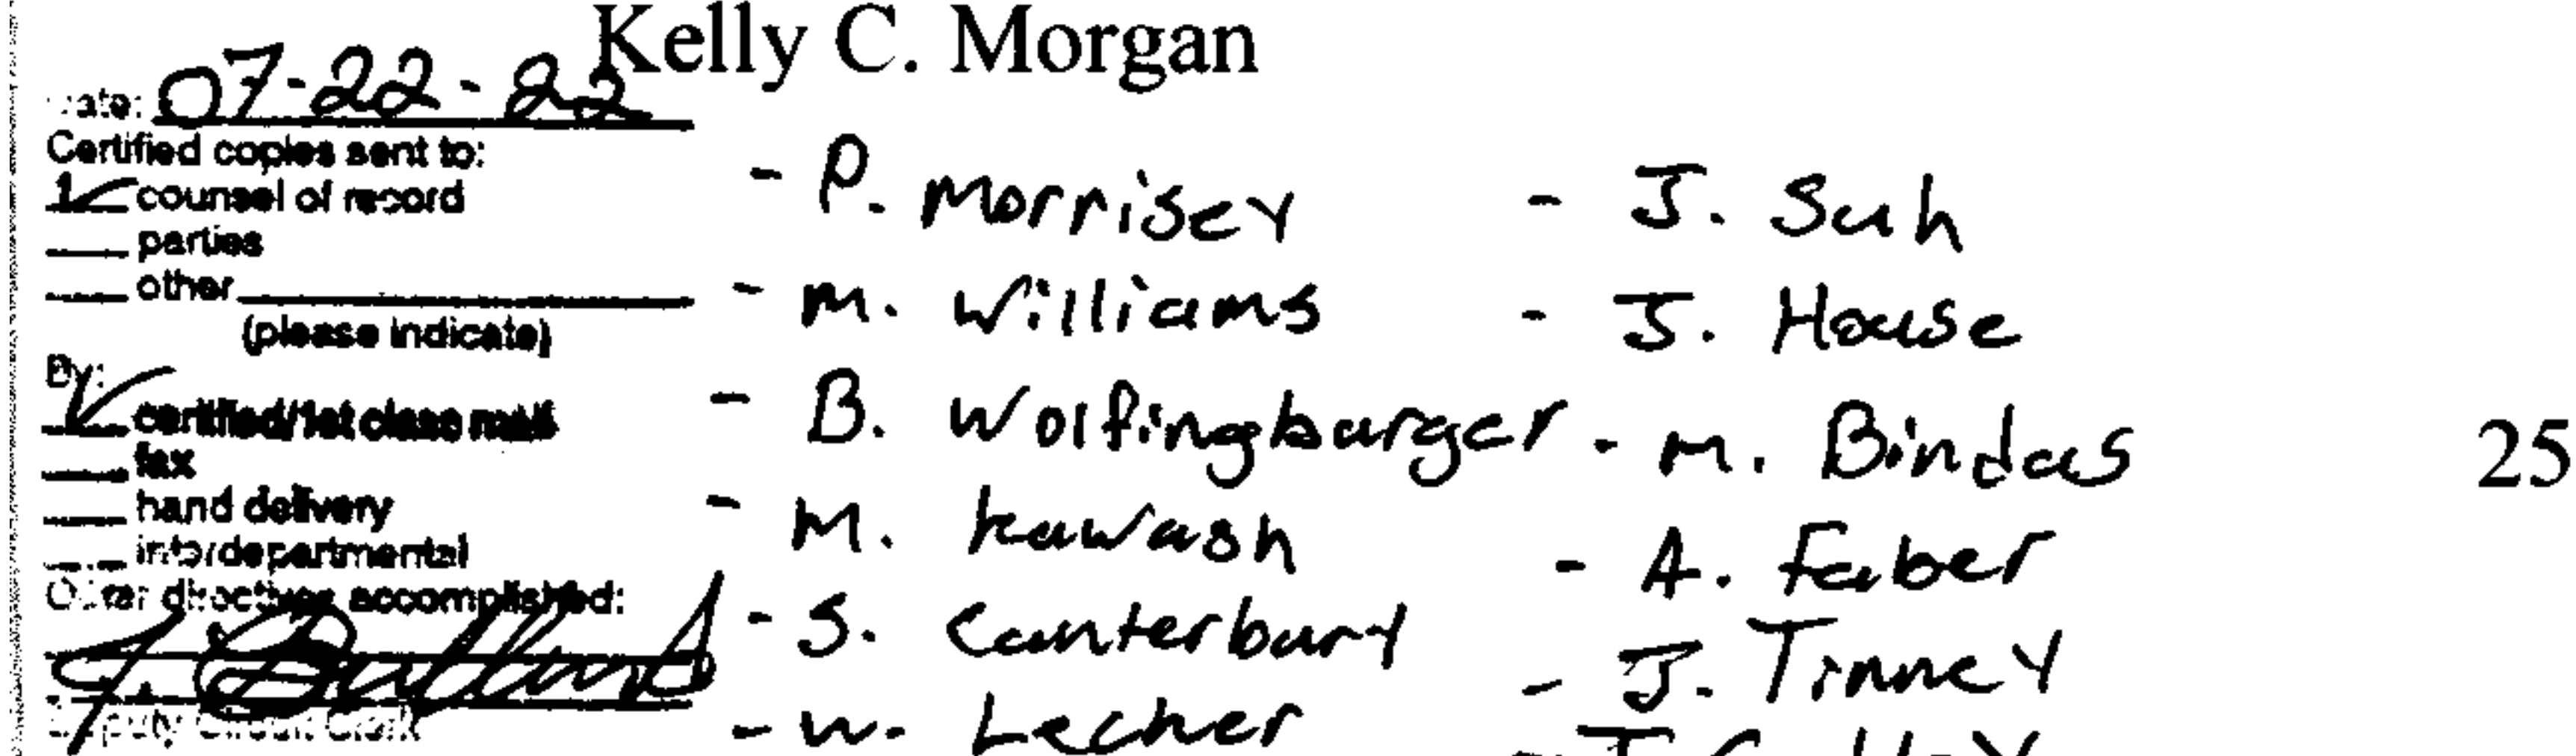 Kelly C. Morgan
Date: 07-22-22
Certified copies sent to:
counsel of record
parties
other
(please indicate)
By:
certified/1st class mail
fax
hand delivery
interdepartmental
Other directives accomplished:
Deputy Circuit Clerk
- P. Morrisey
- M. Williams
- B. Wolfingbarger
- M. Kawash
- S. Canterbury
- W. Lecher
- J. Suh
- J. House
- M. Bindas
- A. Faber
- J. Tinney
25